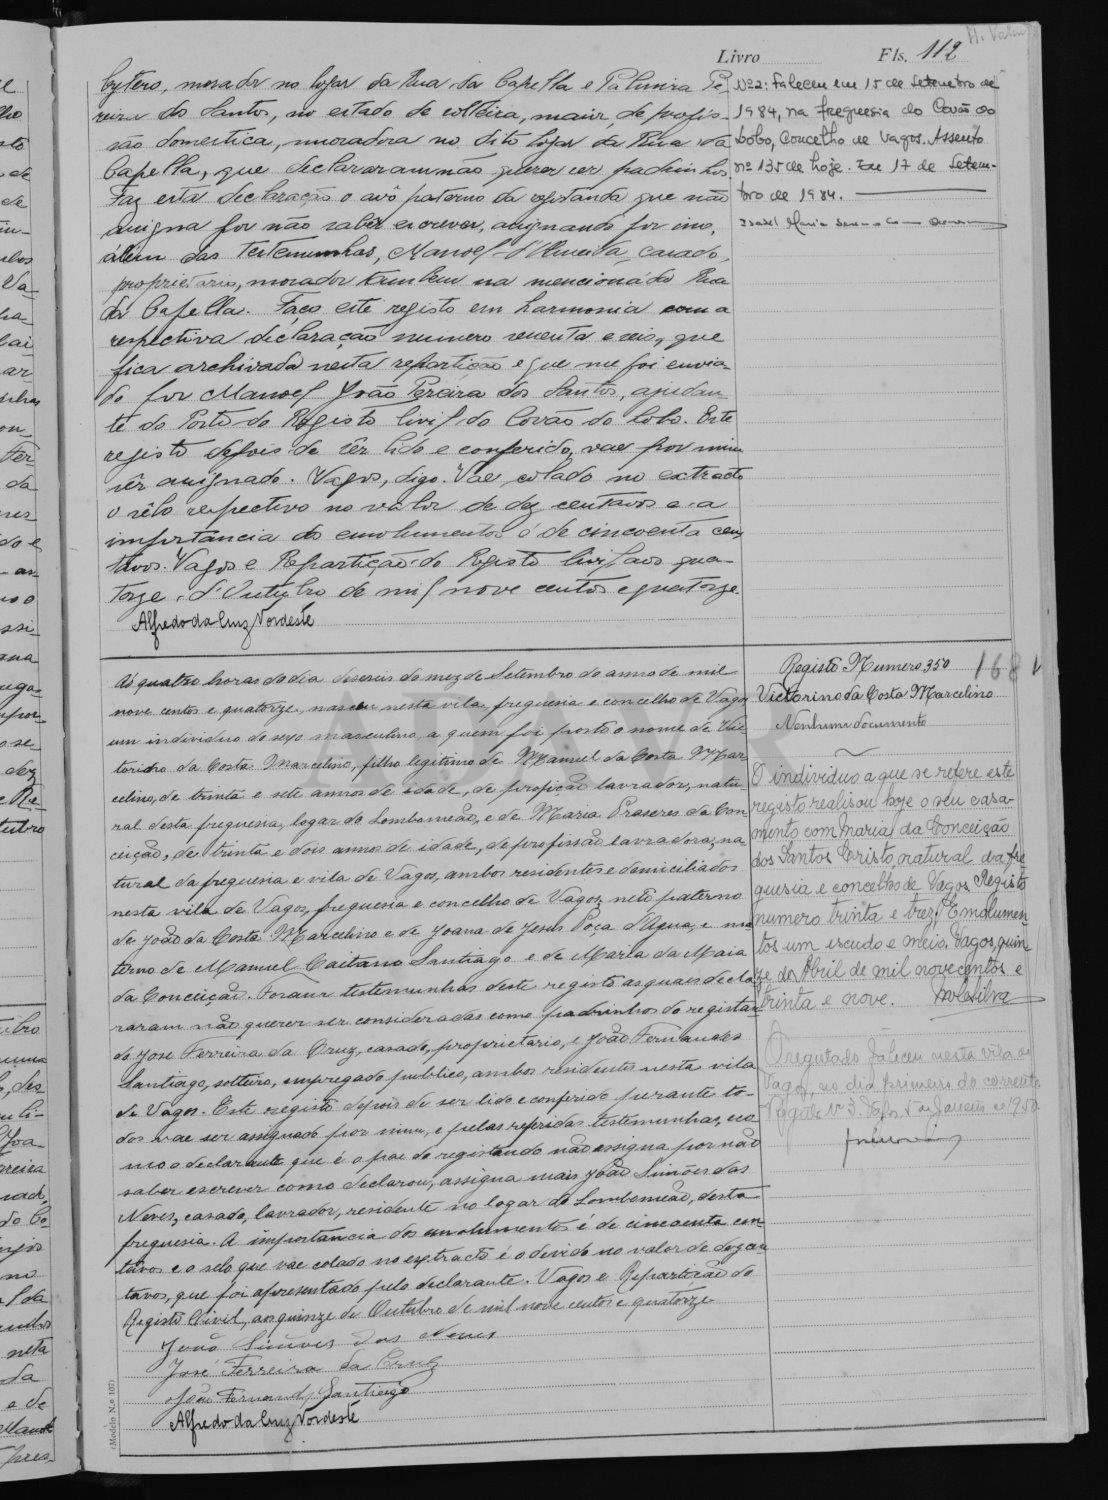 Livro Fls. 112
bytero, morador no logar da Rua da Capella e Palmira Pe
reira dos Santos, no estado de solteira, maior, de profis-
são domestica, moradora no dito logar da Rua da
Capella, que declararam não querer ser padrinhos.
Faz esta declaração o avô paterno da registanda que não
assigna por não saber escrever, assignando por ino,
álem das testemunhas, Manoel d'Almeida, casado,
proprietario, morador tambem na mencionada Rua
da Capella. Faço este registo em harmonia com a
respectiva declaração numero sesenta e seis, que
fica archivada nesta repartição e que me foi envia-
do por Manoel João Pereira dos Santos, ajudan
te do Posto do Registo Civil do Covão do Lobo. Este
registo depois de sêr lido e conferido, vae por mim
sêr assignado. Vagos, digo. Vae colado no extracto
o sêlo respectivo no valor de dez centavos e a
importancia dos emolumentos é de cincoenta cen
tavos. Vagos e Repartição do Registo Civil, aos qua-
torze, d'Outubro de mil nove centos e quatorze.
Alfredo da Cruz Nordeste
Nº2: Faleceu em 15 de Setembro de
1984, na freguesia do Covão do
Lobo, Concelho de Vagos. Assento
nº 135 de hoje. Em 17 de Setem-
bro de 1984.
Isabel Maria
Ás quatro horas do dia deseseis do mez de Setembro do anno de mil
nove centos e quatorze, nasceu nesta vila, freguesia e concelho de Vagos
um individuo do sexo masculino, a quem foi posto o nome de Vic
torino da Costa Marcelino, filho legitimo de Manuel da Costa Mar
celino, de trinta e sete annos de idade, de profição lavrador, natu
ral desta freguesia, logar do Lombomeão, e de Maria Praseres da Con
ceição, de trinta e dois annos de idade, de profissão lavradora, na
tural da freguesia e vila de Vagos, ambos residentes e domiciliados
nesta vila de Vagos, freguesia e concelho de Vagos, neto paterno
de João da Costa Marcelino e de Joana de Jesus Poça d'Agua, e ma
terno de Manuel Caetano Santiago e de Maria da Maia
da Conceição. Foram testemunhas deste registo as quaes decla
raram não querer ser consideradas como padrinhos do registan
do José Ferreira da Cruz, casado, proprietario, e João Fernandes
Santiago, solteiro, empregado publico, ambos residentes nesta vila
de Vagos. Este registo depois de ser lido e conferido perante to-
dos vae ser assignado por mim, e pelas referidas testemunhas, e co
mo o declarante que é o pae do registando não assigna por não
saber escrever como declarou, assigna mais João Simões das
Neves, casado, lavrador, residente no logar do Lombomeão, desta
freguesia. A importancia dos emolumentos é de cincoenta cen
tavos e o selo que vae colado no extracto é o devido no valor de dez cen
tavos, que foi apresentado pelo declarante. Vagos e Repartição do
Registo Civil, aos quinze de Outubro de mil nove centos e quatorze
João Simões das Neves
José Ferreira da Cruz
João Fernandes Santiago
Alfredo da Cruz Nordeste
Registo Numero 350 168
Victorino da Costa Marcelino
Nenhum documento
O individuo a que se refere este
registo realisou hoje o seu casa-
mento com Maria da Conceição
dos Santos Cristo, natural da fre-
guesia e concelho de Vagos. Registo
numero trinta e trez. Emolumen-
tos um escudo e meio. Vagos, quin-
ze de Abril de mil novecentos e
trinta e nove.
O registado faleceu nesta vila de
Vagos, no dia primeiro do corrente.
Registo Nº 3. Vagos, de Janeiro de 1950
(Modelo N.º 107)